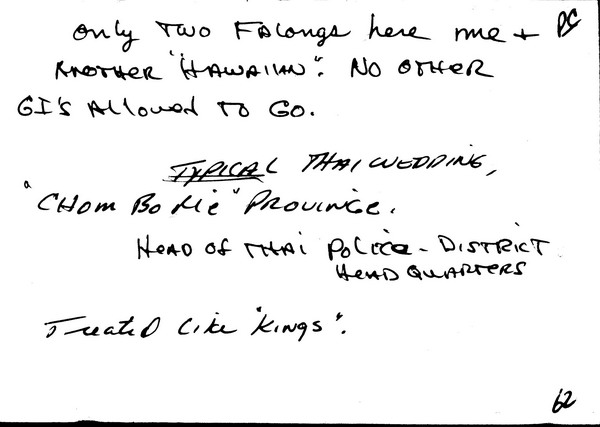 Only Two Falongs here me + PG
ANOTHER "HAWAIIAN". NO OTHER
GI'S Allowed TO GO.
TYPICAL THAI WEDDING,
"CHOM BO Die" PROVINCE.
HEAD OF THAI POLICE - DISTRICT
HEADQUARTERS
Treated Like "Kings".
62